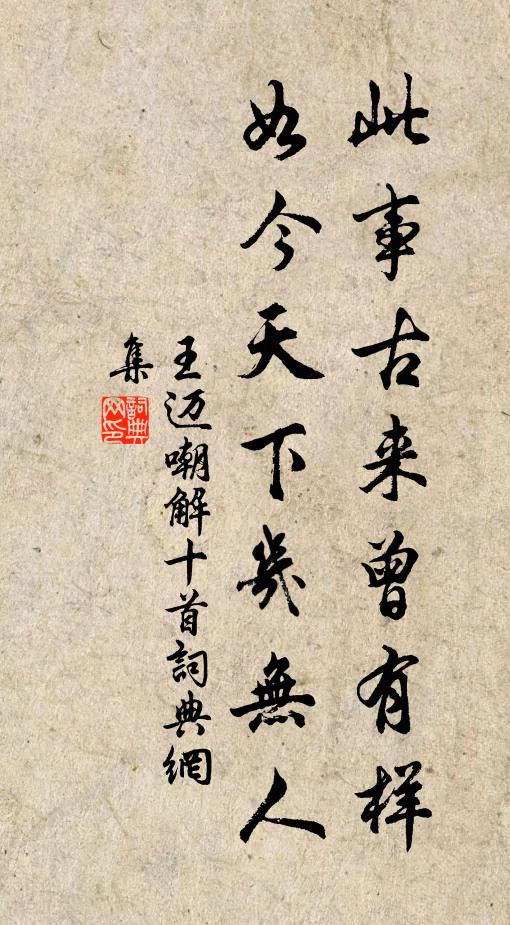 此事古来曾有样
如今天下几無人
王迈嘲解十首詞典網
集
詞典
网印